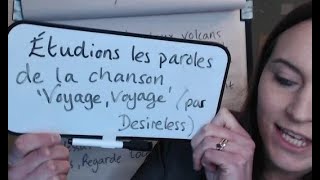 volcans
Étudions les paroles
de la chanson
'Voyage, Voyage' (par
Desireless)
, Regarde